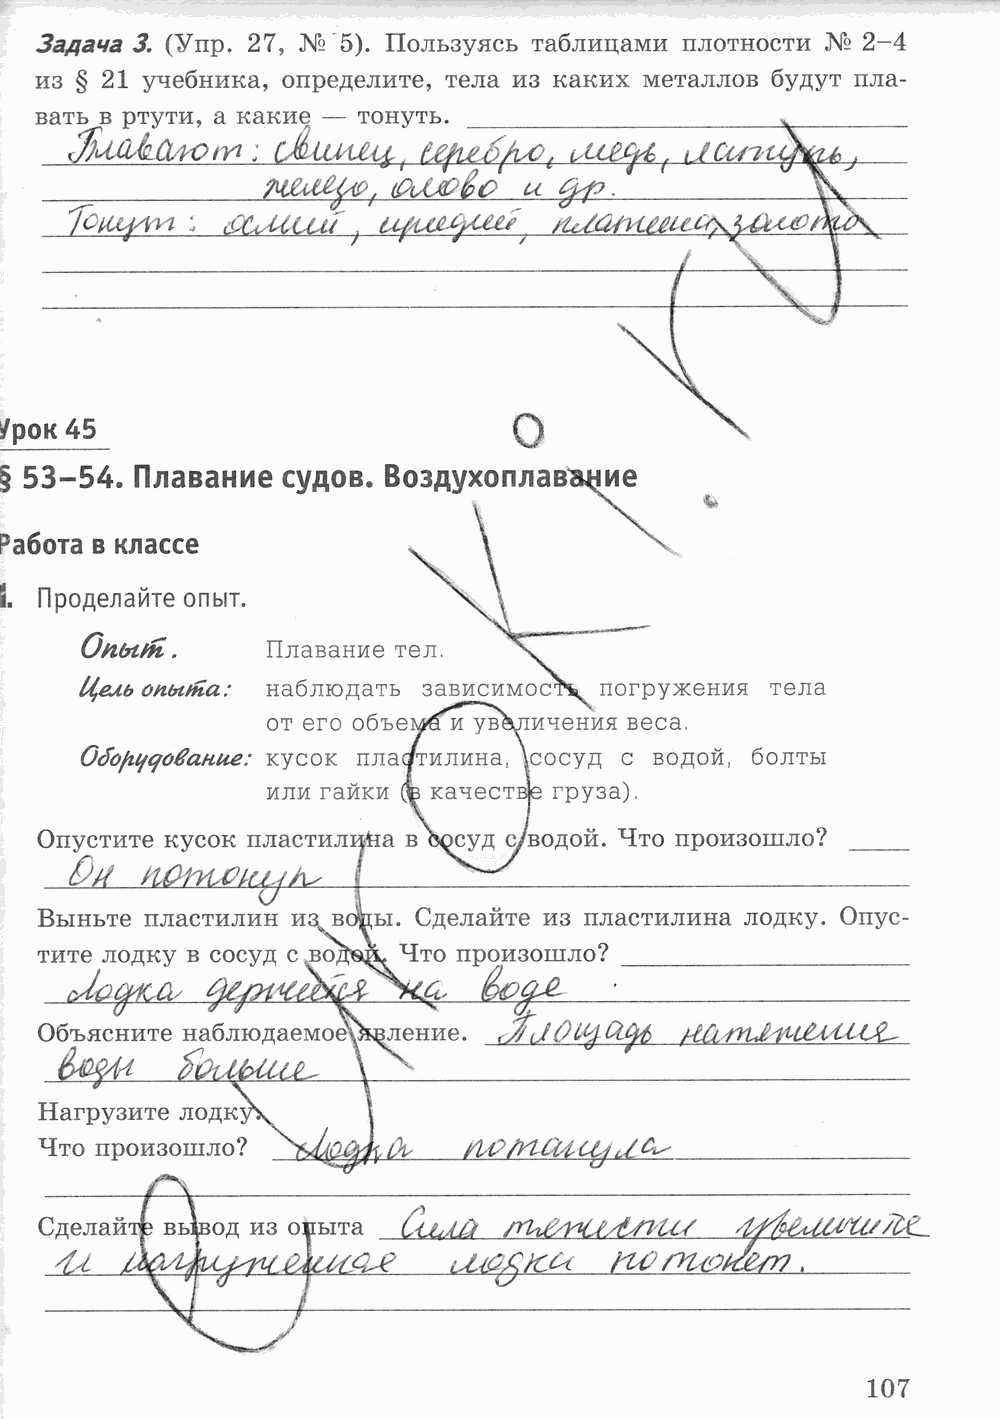 Задача 3. (Упр. 27, № 5). Пользуясь таблицами плотности № 2–4
из § 21 учебника, определите, тела из каких металлов будут пла-
вать в ртути, а какие — тонуть.
Плавают: свинец, серебро, медь, латунь,
железо, олово и др.
Тонут: осмий, иридий, платина, золото
Урок 45
§ 53–54. Плавание судов. Воздухоплавание
Работа в классе
1. Проделайте опыт.
Опыт. Плавание тел.
Цель опыта: наблюдать зависимость погружения тела
от его объема и увеличения веса.
Оборудование: кусок пластилина, сосуд с водой, болты
или гайки (в качестве груза).
Опустите кусок пластилина в сосуд с водой. Что произошло?
Он потонул
Выньте пластилин из воды. Сделайте из пластилина лодку. Опус-
тите лодку в сосуд с водой. Что произошло?
Лодка держится на воде
Объясните наблюдаемое явление. Площадь натяжения
воды больше
Нагрузите лодку.
Что произошло? Лодка потанула
Сделайте вывод из опыта Сила тяжести увеличите
и нагруженная лодка потонет.
107